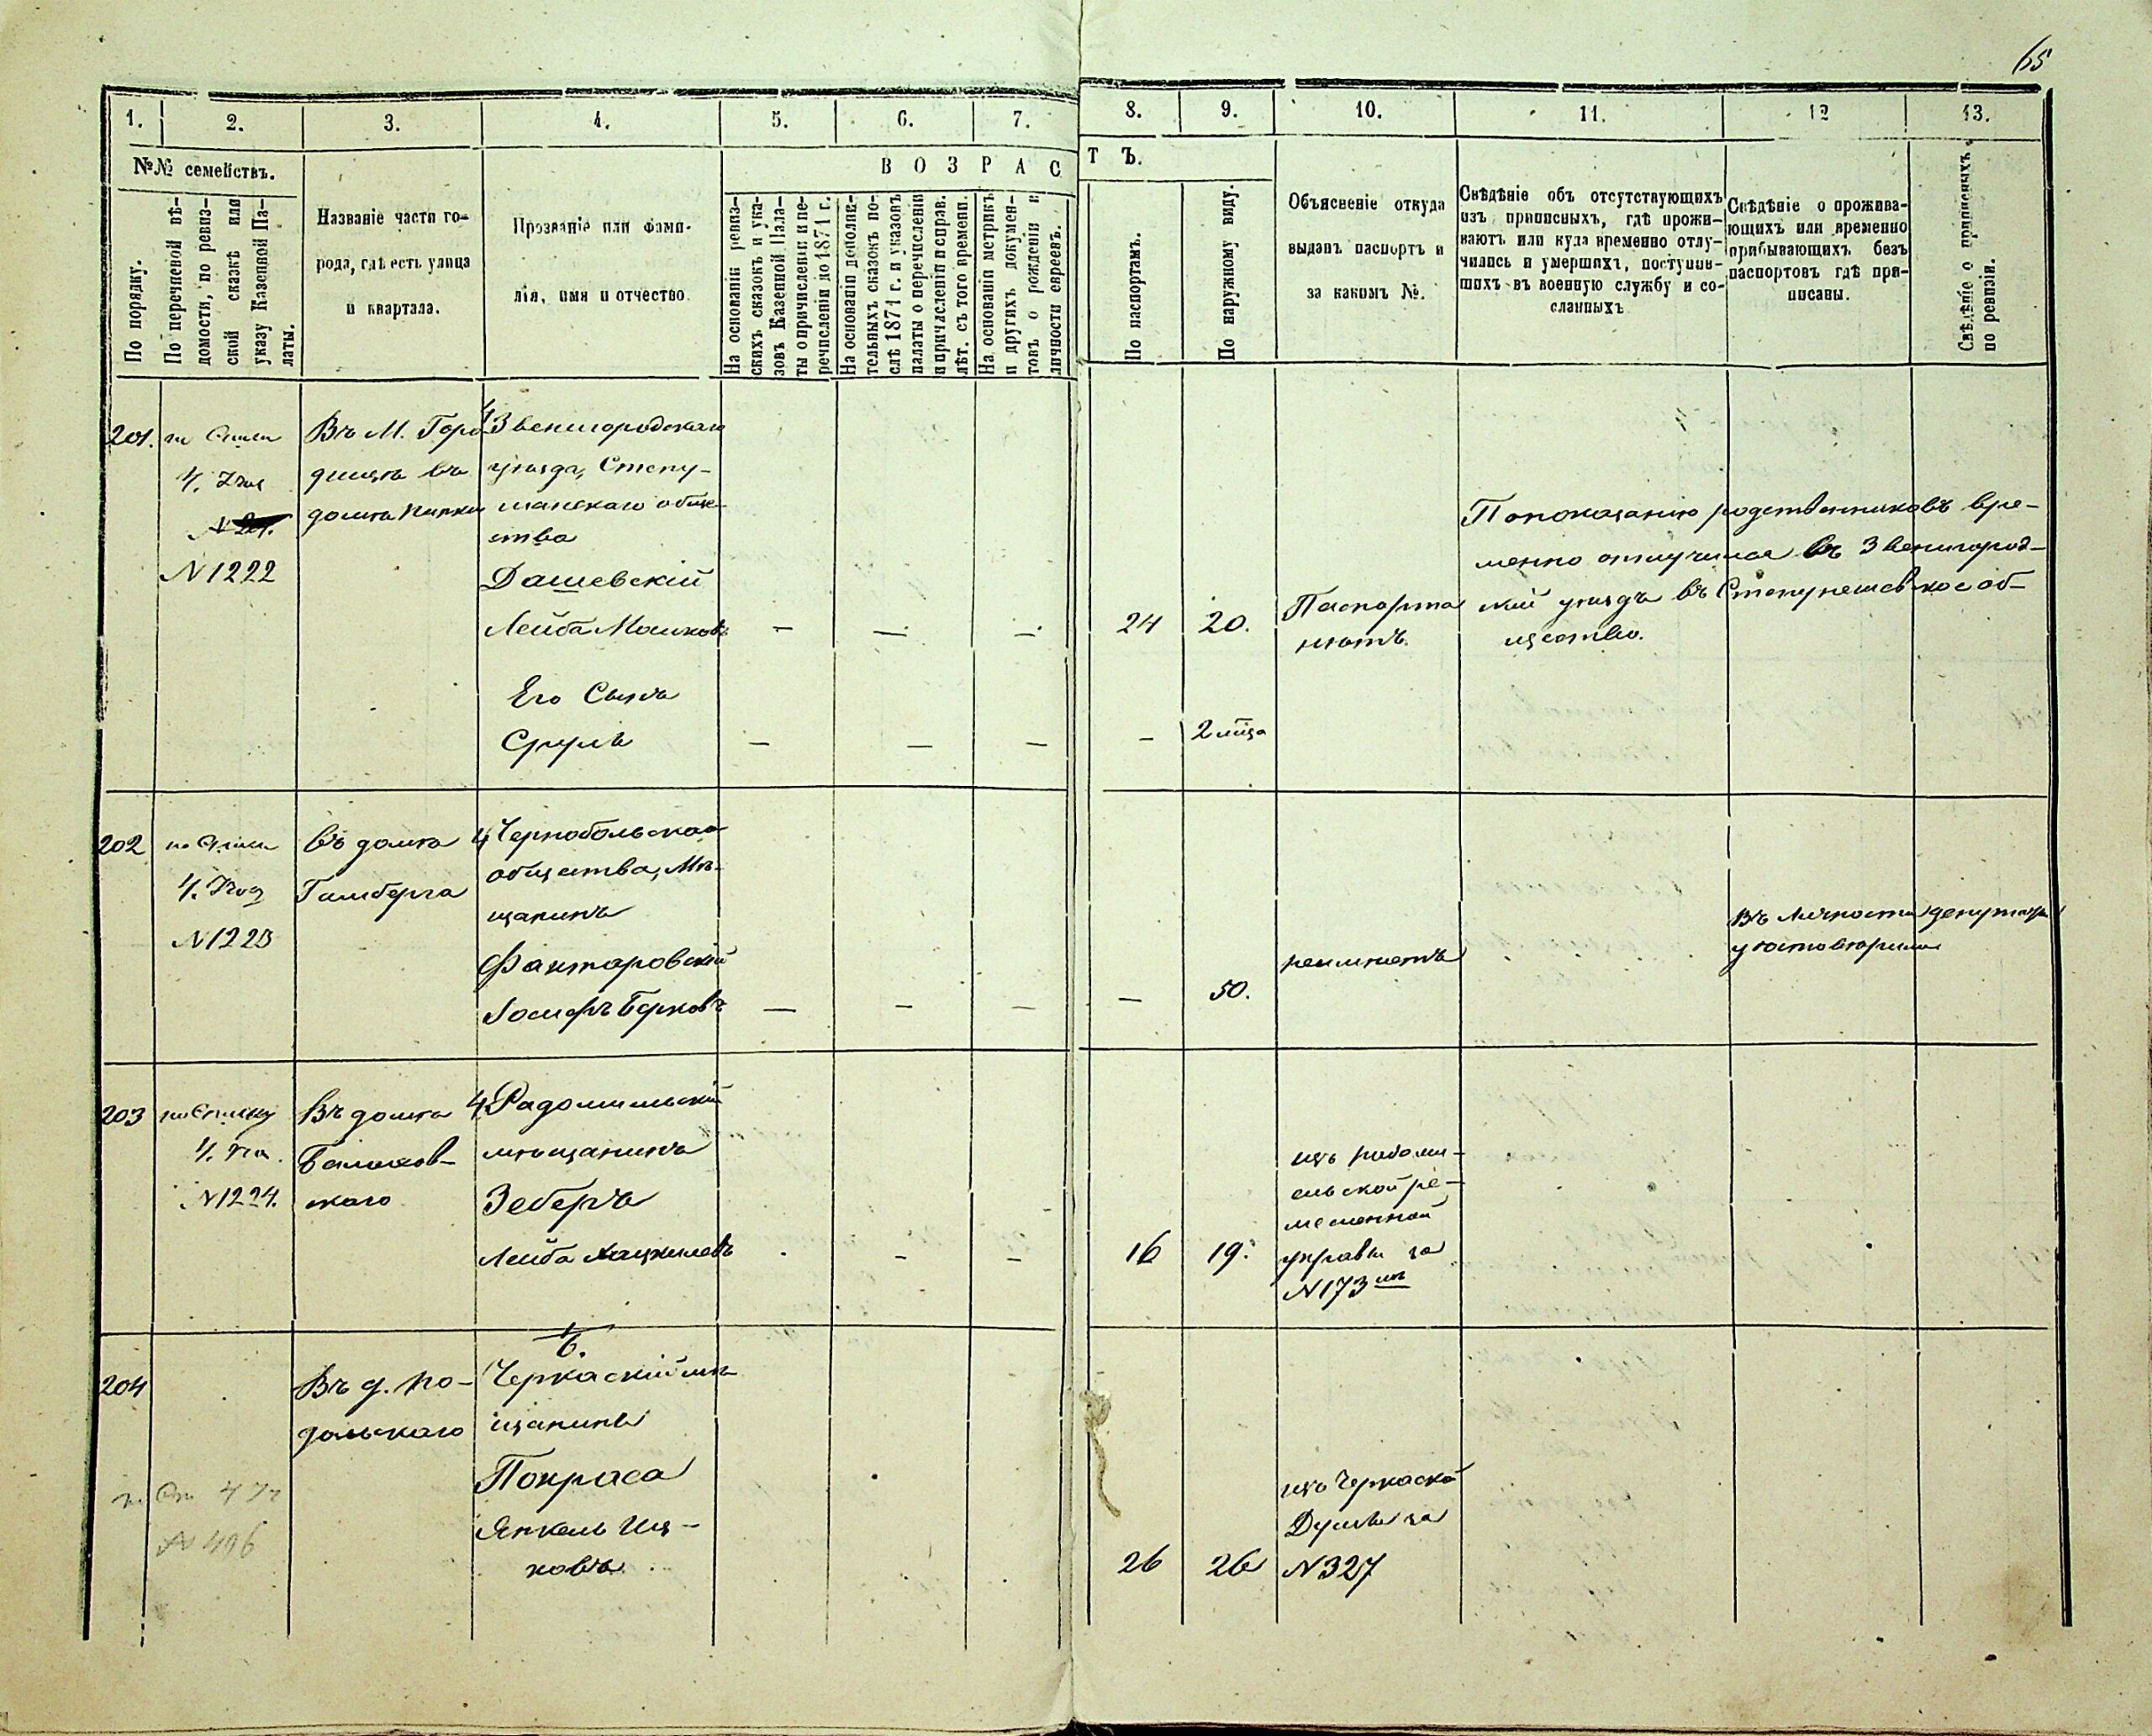 65
1.
2.
3.
4.
5.
6.
7.
8.
9.
10.
11.
12
13.
№№ семействъ.
ВОЗРАС
ТЪ.
По порядку.
По перечневой вѣ-
домости, по ревиз-
ской сказкѣ или
указу Казенной Па-
латы.
Названіе части го-
рода, гдѣ есть улица
и квартала.
Прозваніе или фами-
лія, имя и отчество.
На основаніи ревиз-
скихъ сказокъ и ука-
зовъ Казенной Пала-
ты о причисленіи и пе-
речисленіи до 1871 г.
На основаніи дополни-
тельныхъ сказокъ по-
слѣ 1871 г. и указовъ
палаты о перечисленіи
и причисленіи и справ.
лѣт. съ того времени.
На основаніи метрикъ
и другихъ докумен-
товъ о рожденіи и
личности евреевъ.
По паспортамъ.
По наружному виду.
Объясненіе откуда
выданъ паспортъ и
за какимъ №.
Свѣдѣніе объ отсутствующихъ
изъ приписныхъ, гдѣ прожи-
ваютъ или куда временно отлу-
чились и умершихъ, поступив-
шихъ въ военную службу и со-
сланныхъ
Свѣдѣніе о прожива-
ющихъ или временно
прибывающихъ безъ
паспортовъ гдѣ при-
писаны.
Свѣдѣніе о приписныхъ
по ревизіи.
201.
N 1222
Въ М. Горо-
дищѣ въ
домѣ
4 Звенигородскаго
уѣзда,
общe-
ства
Дашевскій
Лейба Мошковъ
— — —
24
20.
Паспорта
нѣтъ.
По показанію родственниковъ вре-
менно отлучился въ Звенигород-
скій уѣздъ въ об-
щество.
Его Сынъ
Сруль
— — —
—
2 мѣца
202
N 1223
Въ домѣ
Гимберга
4 Чернобольскаго
общества, Мѣ-
щанинъ
Факторовскій
Іосифъ Берковъ
— — —
—
50.
неимѣетъ
Въ личности депутаты
удостовѣрили
203
по списку
N 1224.
Въ домѣ
скаго
4 Радомисльскій
мѣщанинъ
Зеберъ
Лейба Хацкилевъ
— —
16
19.
изъ радоми-
сльской ре-
месленной
управы за
N 173
204
N 496
Въ д. По-
дольскаго
6.
Черкаскій мѣ-
щанинъ
Покраса
Янкель Иц-
ковъ
26
26
изъ Черкаской
Думы за
N 327